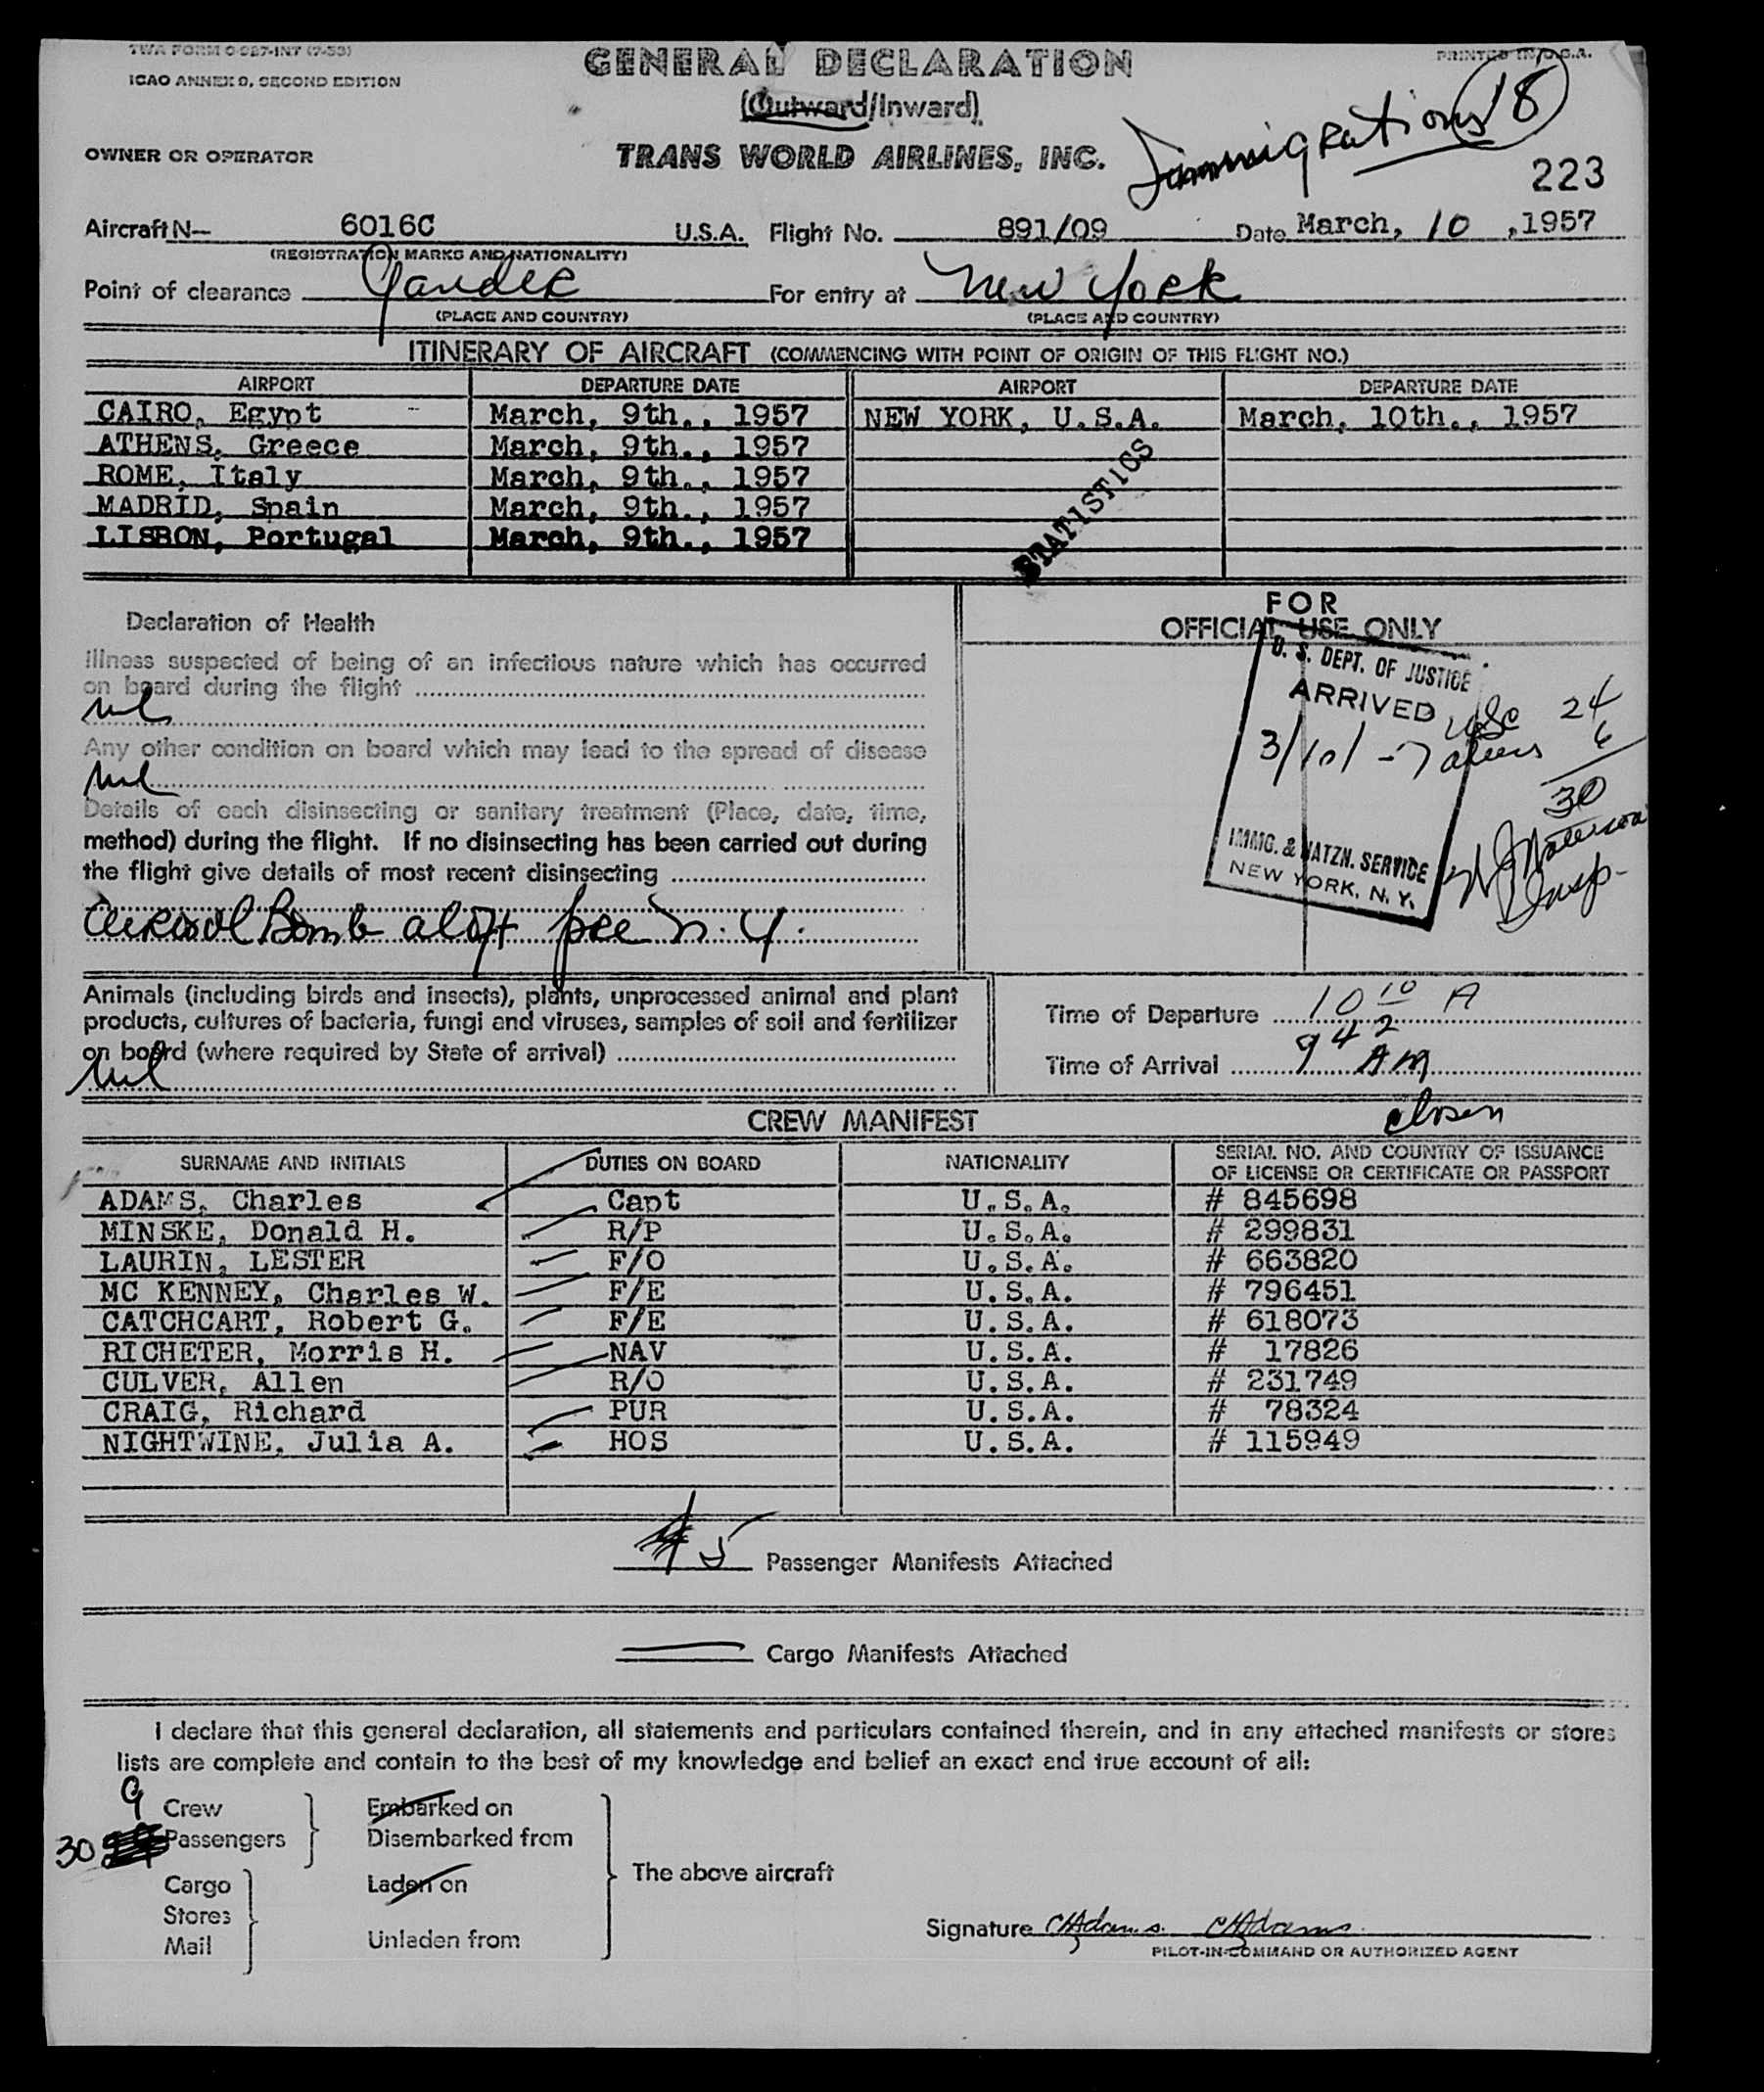 TWA FORM O-927-INT (7-53)
ICAO ANNEX 9, SECOND EDITION
GENERAL DECLARATION
PRINTED IN U.S.A.
(Outward/Inward)
Immigrations 18
OWNER OR OPERATOR
TRANS WORLD AIRLINES, INC.
223
Aircraft N— 6016C U.S.A. Flight No. 891/09 Date March, 10 ,1957
(REGISTRATION MARKS AND NATIONALITY)
Point of clearance Gander For entry at New York
(PLACE AND COUNTRY) (PLACE AND COUNTRY)
ITINERARY OF AIRCRAFT (COMMENCING WITH POINT OF ORIGIN OF THIS FLIGHT NO.)
AIRPORT DEPARTURE DATE AIRPORT DEPARTURE DATE
CAIRO, Egypt March, 9th., 1957 NEW YORK, U.S.A. March, 10th., 1957
ATHENS, Greece March, 9th., 1957
ROME, Italy March, 9th., 1957
MADRID, Spain March, 9th., 1957
LISBON, Portugal March, 9th., 1957
STATISTICS
Declaration of Health
Illness suspected of being of an infectious nature which has occurred
on board during the flight
nil
Any other condition on board which may lead to the spread of disease
nil
Details of each disinsecting or sanitary treatment (Place, date, time,
method) during the flight. If no disinsecting has been carried out during
the flight give details of most recent disinsecting
Aerosol Bomb aloft pre N.Y.
FOR
OFFICIAL USE ONLY
U. S. DEPT. OF JUSTICE
ARRIVED
3/10/-7
IMMG. & NATZN. SERVICE
NEW YORK, N. Y.
USC 24
aliens 6
30
Insp.
Animals (including birds and insects), plants, unprocessed animal and plant
products, cultures of bacteria, fungi and viruses, samples of soil and fertilizer
on board (where required by State of arrival)
nil
Time of Departure 10 10 A
Time of Arrival 9 42 AM
CREW MANIFEST
SURNAME AND INITIALS DUTIES ON BOARD NATIONALITY SERIAL NO. AND COUNTRY OF ISSUANCE
OF LICENSE OR CERTIFICATE OR PASSPORT
ADAMS, Charles Capt U.S.A. # 845698
MINSKE, Donald H. R/P U.S.A. # 299831
LAURIN, LESTER F/O U.S.A. # 663820
MC KENNEY, Charles W. F/E U.S.A. # 796451
CATCHCART, Robert G. F/E U.S.A. # 618073
RICHETER, Morris H. NAV U.S.A. # 17826
CULVER, Allen R/O U.S.A. # 231749
CRAIG, Richard PUR U.S.A. # 78324
NIGHTWINE, Julia A. HOS U.S.A. # 115949
5 Passenger Manifests Attached
Cargo Manifests Attached
I declare that this general declaration, all statements and particulars contained therein, and in any attached manifests or stores
lists are complete and contain to the best of my knowledge and belief an exact and true account of all:
9 Crew Embarked on
30 Passengers Disembarked from
The above aircraft
Cargo Laden on
Stores
Mail Unladen from
Signature CHAdams. CHAdams.
PILOT-IN-COMMAND OR AUTHORIZED AGENT